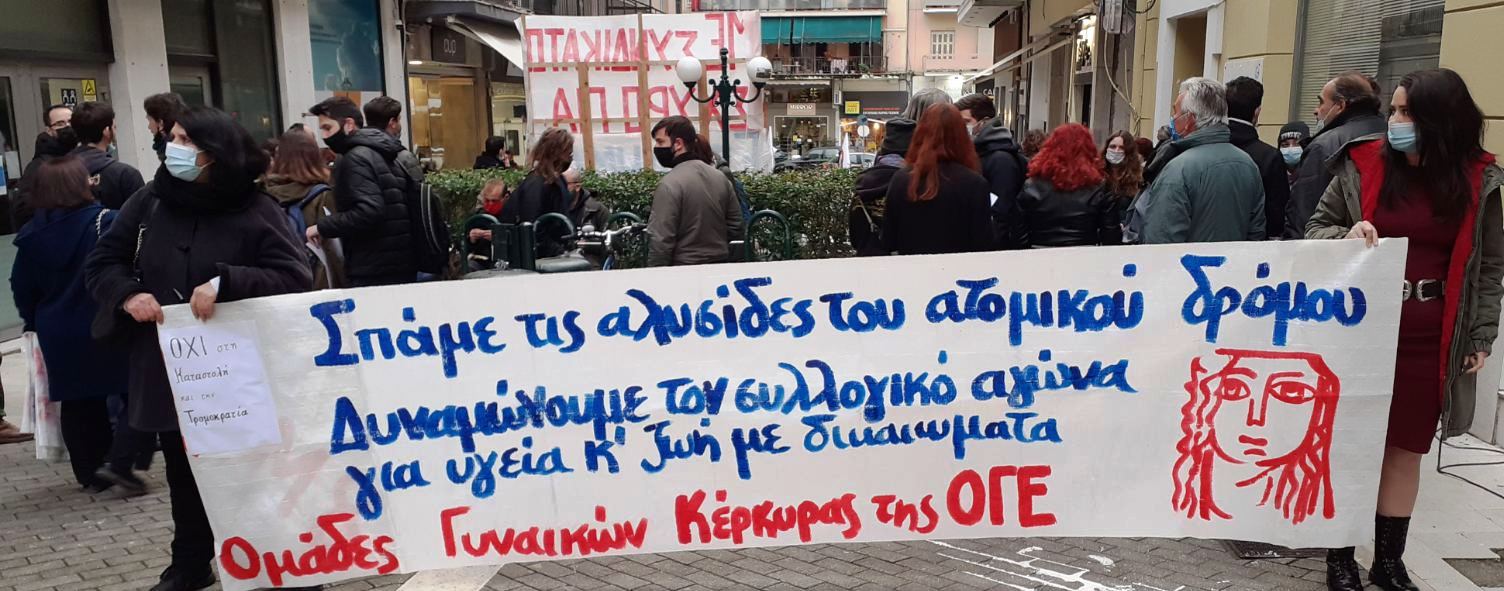 ΜΕ ΣΥΝΔΙΚΑΤΟ
ΟΧΙ στη
Καταστολή
και την
Τρομοκρατία
Σπάμε τις αλυσίδες του ατομικού δρόμου
Δυναμώνουμε τον συλλογικό αγώνα
για υγεία κ' ζωή με δικαιώματα
Ομάδες Γυναικών Κέρκυρας της ΟΓΕ